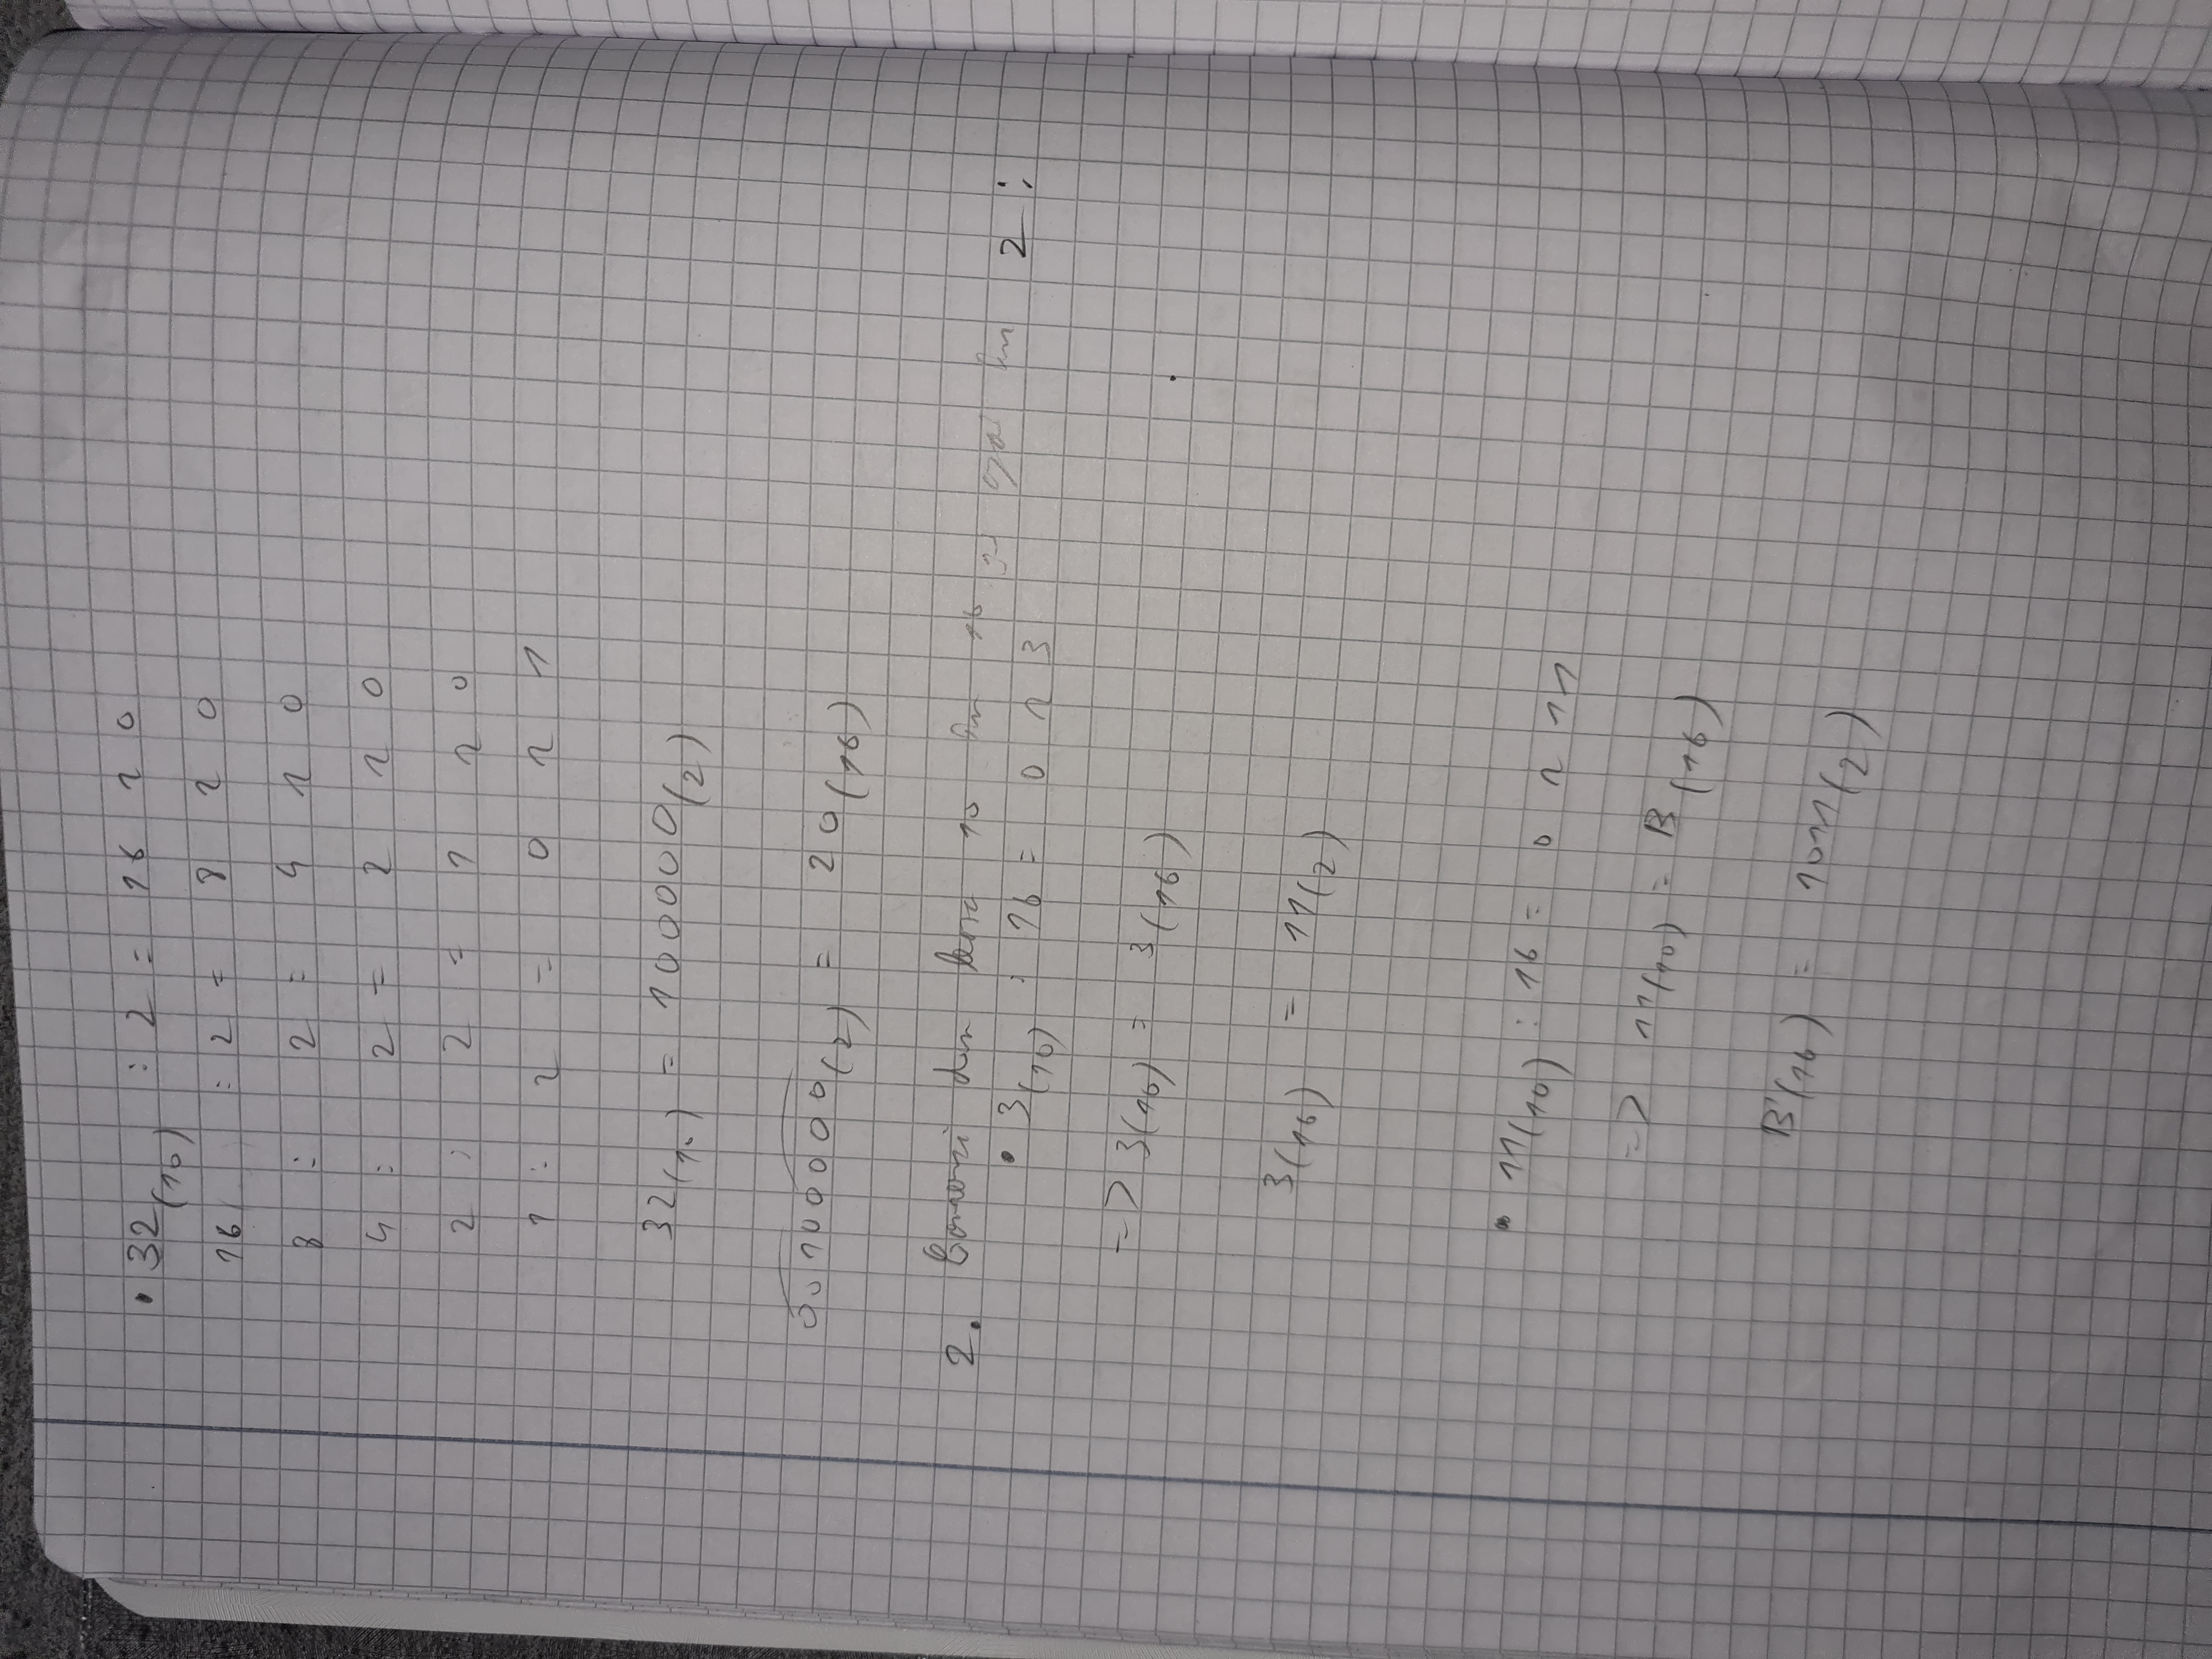 • 32(10) : 2 = 16 r 0
16 : 2 = 8 r 0
8 : 2 = 4 r 0
4 : 2 = 2 r 0
2 : 2 = 1 r 0
1 : 2 = 0 r 1
32(10) = 100000(2)
00100000(2) = 20(16)
2. din baza 10 în 16 și apoi în 2 :
• 3(10) : 16 = 0 r 3
=> 3(10) = 3(16)
3(16) = 11(2)
• 11(10) : 16 = 0 r 11
=> 11(10) = B(16)
B(16) = 1011(2)